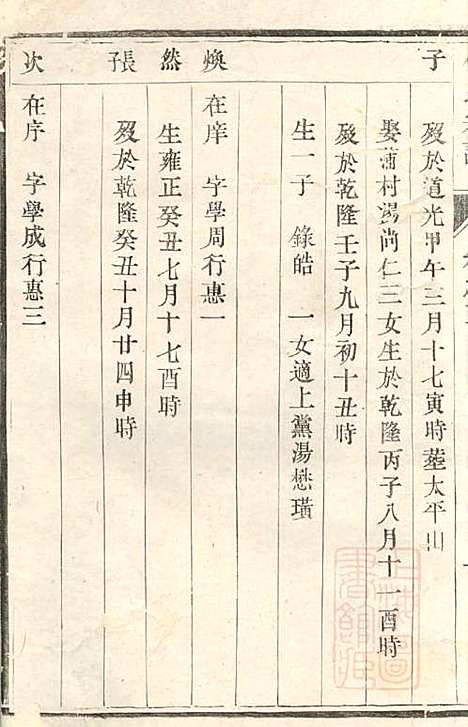 子
歿於道光甲午三月十七寅時塟太平山
娶蒲村湯尚仁三女生於乾隆丙子八月十一酉時
歿於乾隆壬子九月初十丑時
生一子 錄皓 一女適上黨湯懋璜
煥然張
在庠 字學周行惠一
生雍正癸丑七月十七酉時
歿於乾隆癸丑十月廿四申時
次
在序 字學成行惠三
上海圖書館藏